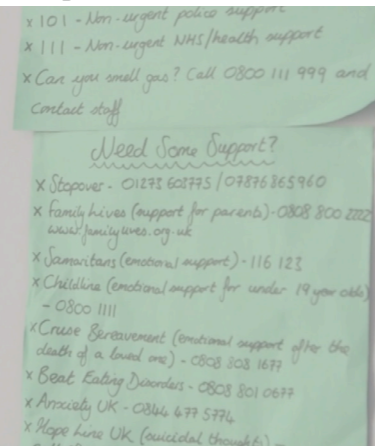 x 101 - Non-urgent police support
x 111 - Non-urgent NHS/health support
x Can you smell gas? Call 0800 111 999 and
contact staff
Need Some Support?
x Stopover - 01273 603775 / 07876 865960
x Family Lives (support for parents) - 0808 800 2222
www.familylives.org.uk
x Samaritans (emotional support) - 116 123
x Childline (emotional support for under 19 year olds)
- 0800 1111
x Cruse Bereavement (emotional support after the
death of a loved one) - 0808 808 1677
x Beat Eating Disorders - 0808 801 0677
x Anxiety UK - 0344 477 5774
x Hope Line UK (suicidal thoughts) -